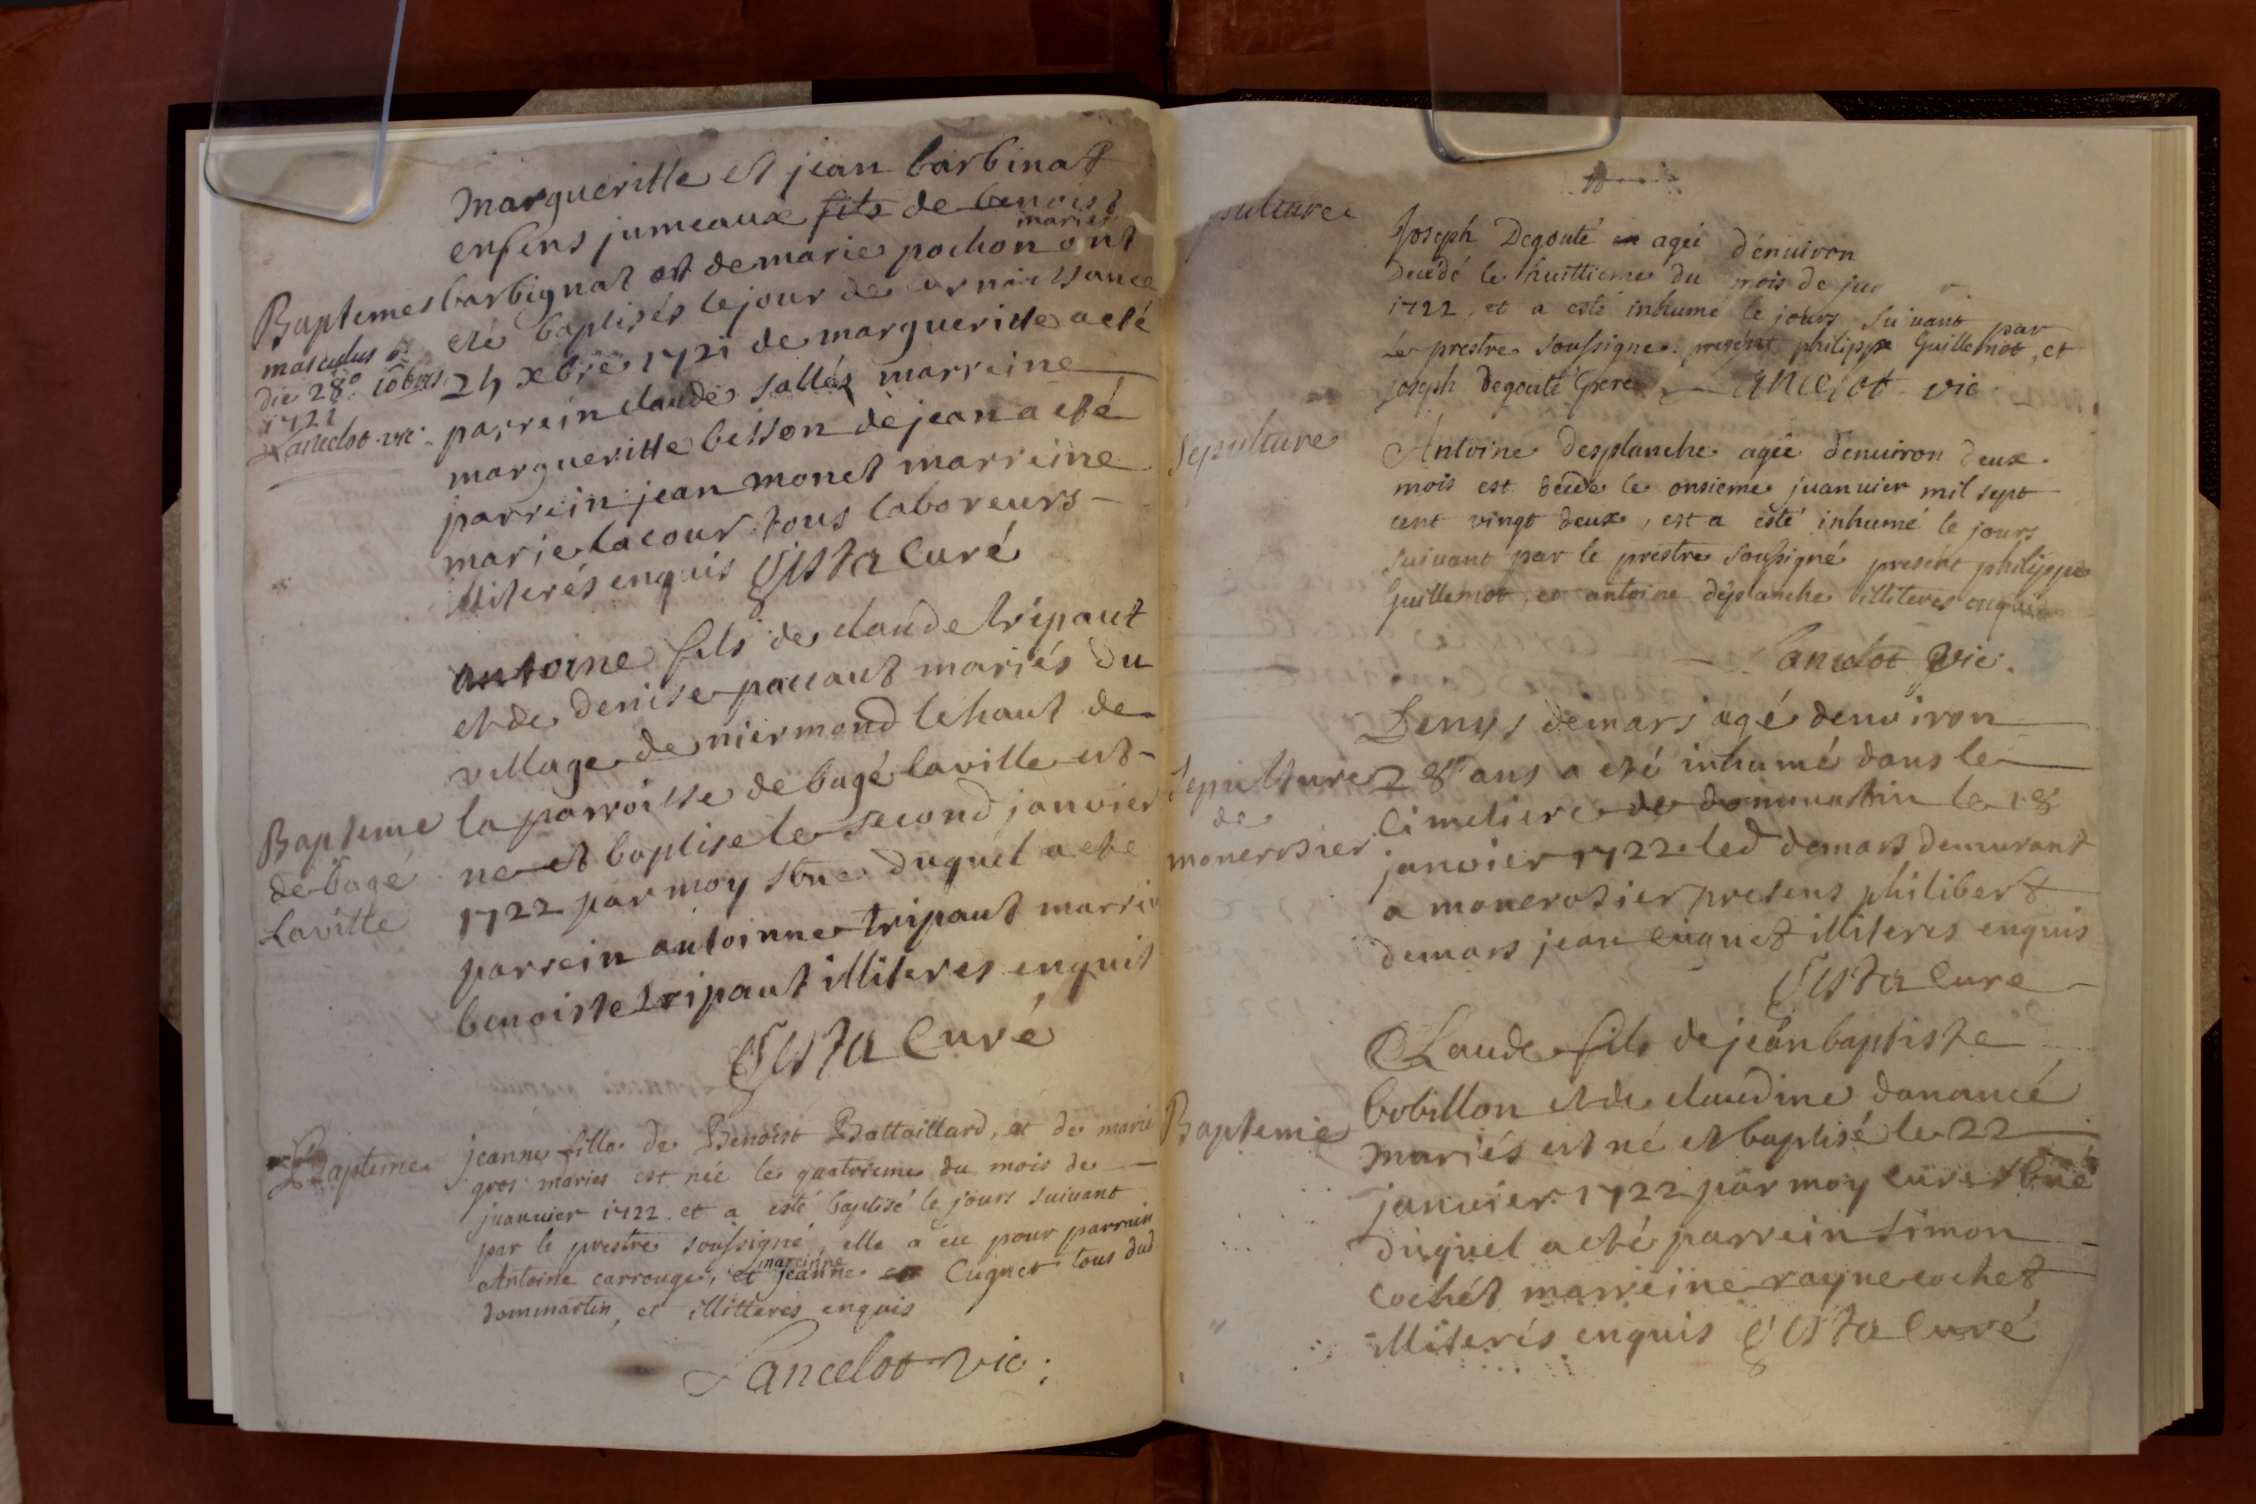 margueritte et jean barbinat
enfens jumeaux fils de benoist
mariés
barbignat et de marie pochon ont
Baptemes
eté baptisés le jour de leur naissance
masculus
24 xbre 1721 de margueritte a eté
die 28° 10bris
1721
Lancelot vic.
parrein claude sallés marreine
margueritte besson de jean a eté
parrein jean monet marreine
marie lacour tous laboreurs
illiterés enquis Gista Curé
antoine fils de claude tripaut
et de denise pacaut mariés du
village de niermond le haut de
la parroisse de bagé la ville est
Bapteme
de bagé
Laville
né et baptise le second janvier
1722 par moy sbné duquel a eté
parrein antoinne tripaut marrein
benoiste tripaut illiteres enquis
Gista Curé
Bapteme
jeanne fille de Benoist Battaillard, et de marie
gros mariés est née le quatorieme du mois de
juanvier 1722 et a esté baptisé le jours suivant
par le prestre soussigné, elle a eu pour parrain
marreine
Antoine carrouge, et jeanne Cugnet tous dud
dommartin, et illitterés enquis
Lancelot vic:
sepulture
Joseph Degouté en ageé d'enuiron
decédé le huittieme du mois de
1722, et a esté inhumé le jours suivant par
Le prestre soussigné present philippe Guillemot, et
joseph degouté frere Lancelot vic
Sepulture
Antoine Desplanche ageé d'enuiron deux
mois est decedé le onsieme juanuier mil sept
cent vingt deux, est a esté inhumé le jours
suiuant par le prestre soussigné present philippe
Guillemot, et antoine desplanche illiteres enquis
Lancelot Vic.
Denys demars agé denviron
Sepulture
de
monerosier
28 ans a eté inhumé dans le
Cimetiere de dommartin le 18
janvier 1722 led demars demurant
a monerosier presens philibert
demars jean cugnet illiteres enquis
Gista Cure
Claude fils de jean baptiste
bobillon et de claudine danancé
Bapteme
mariés est né et baptisé le 22
janvier 1722 par moy curé sbné
duquel a eté parrein simon
cochet marreine rayne cochet
illiterés enquis Gista Curé